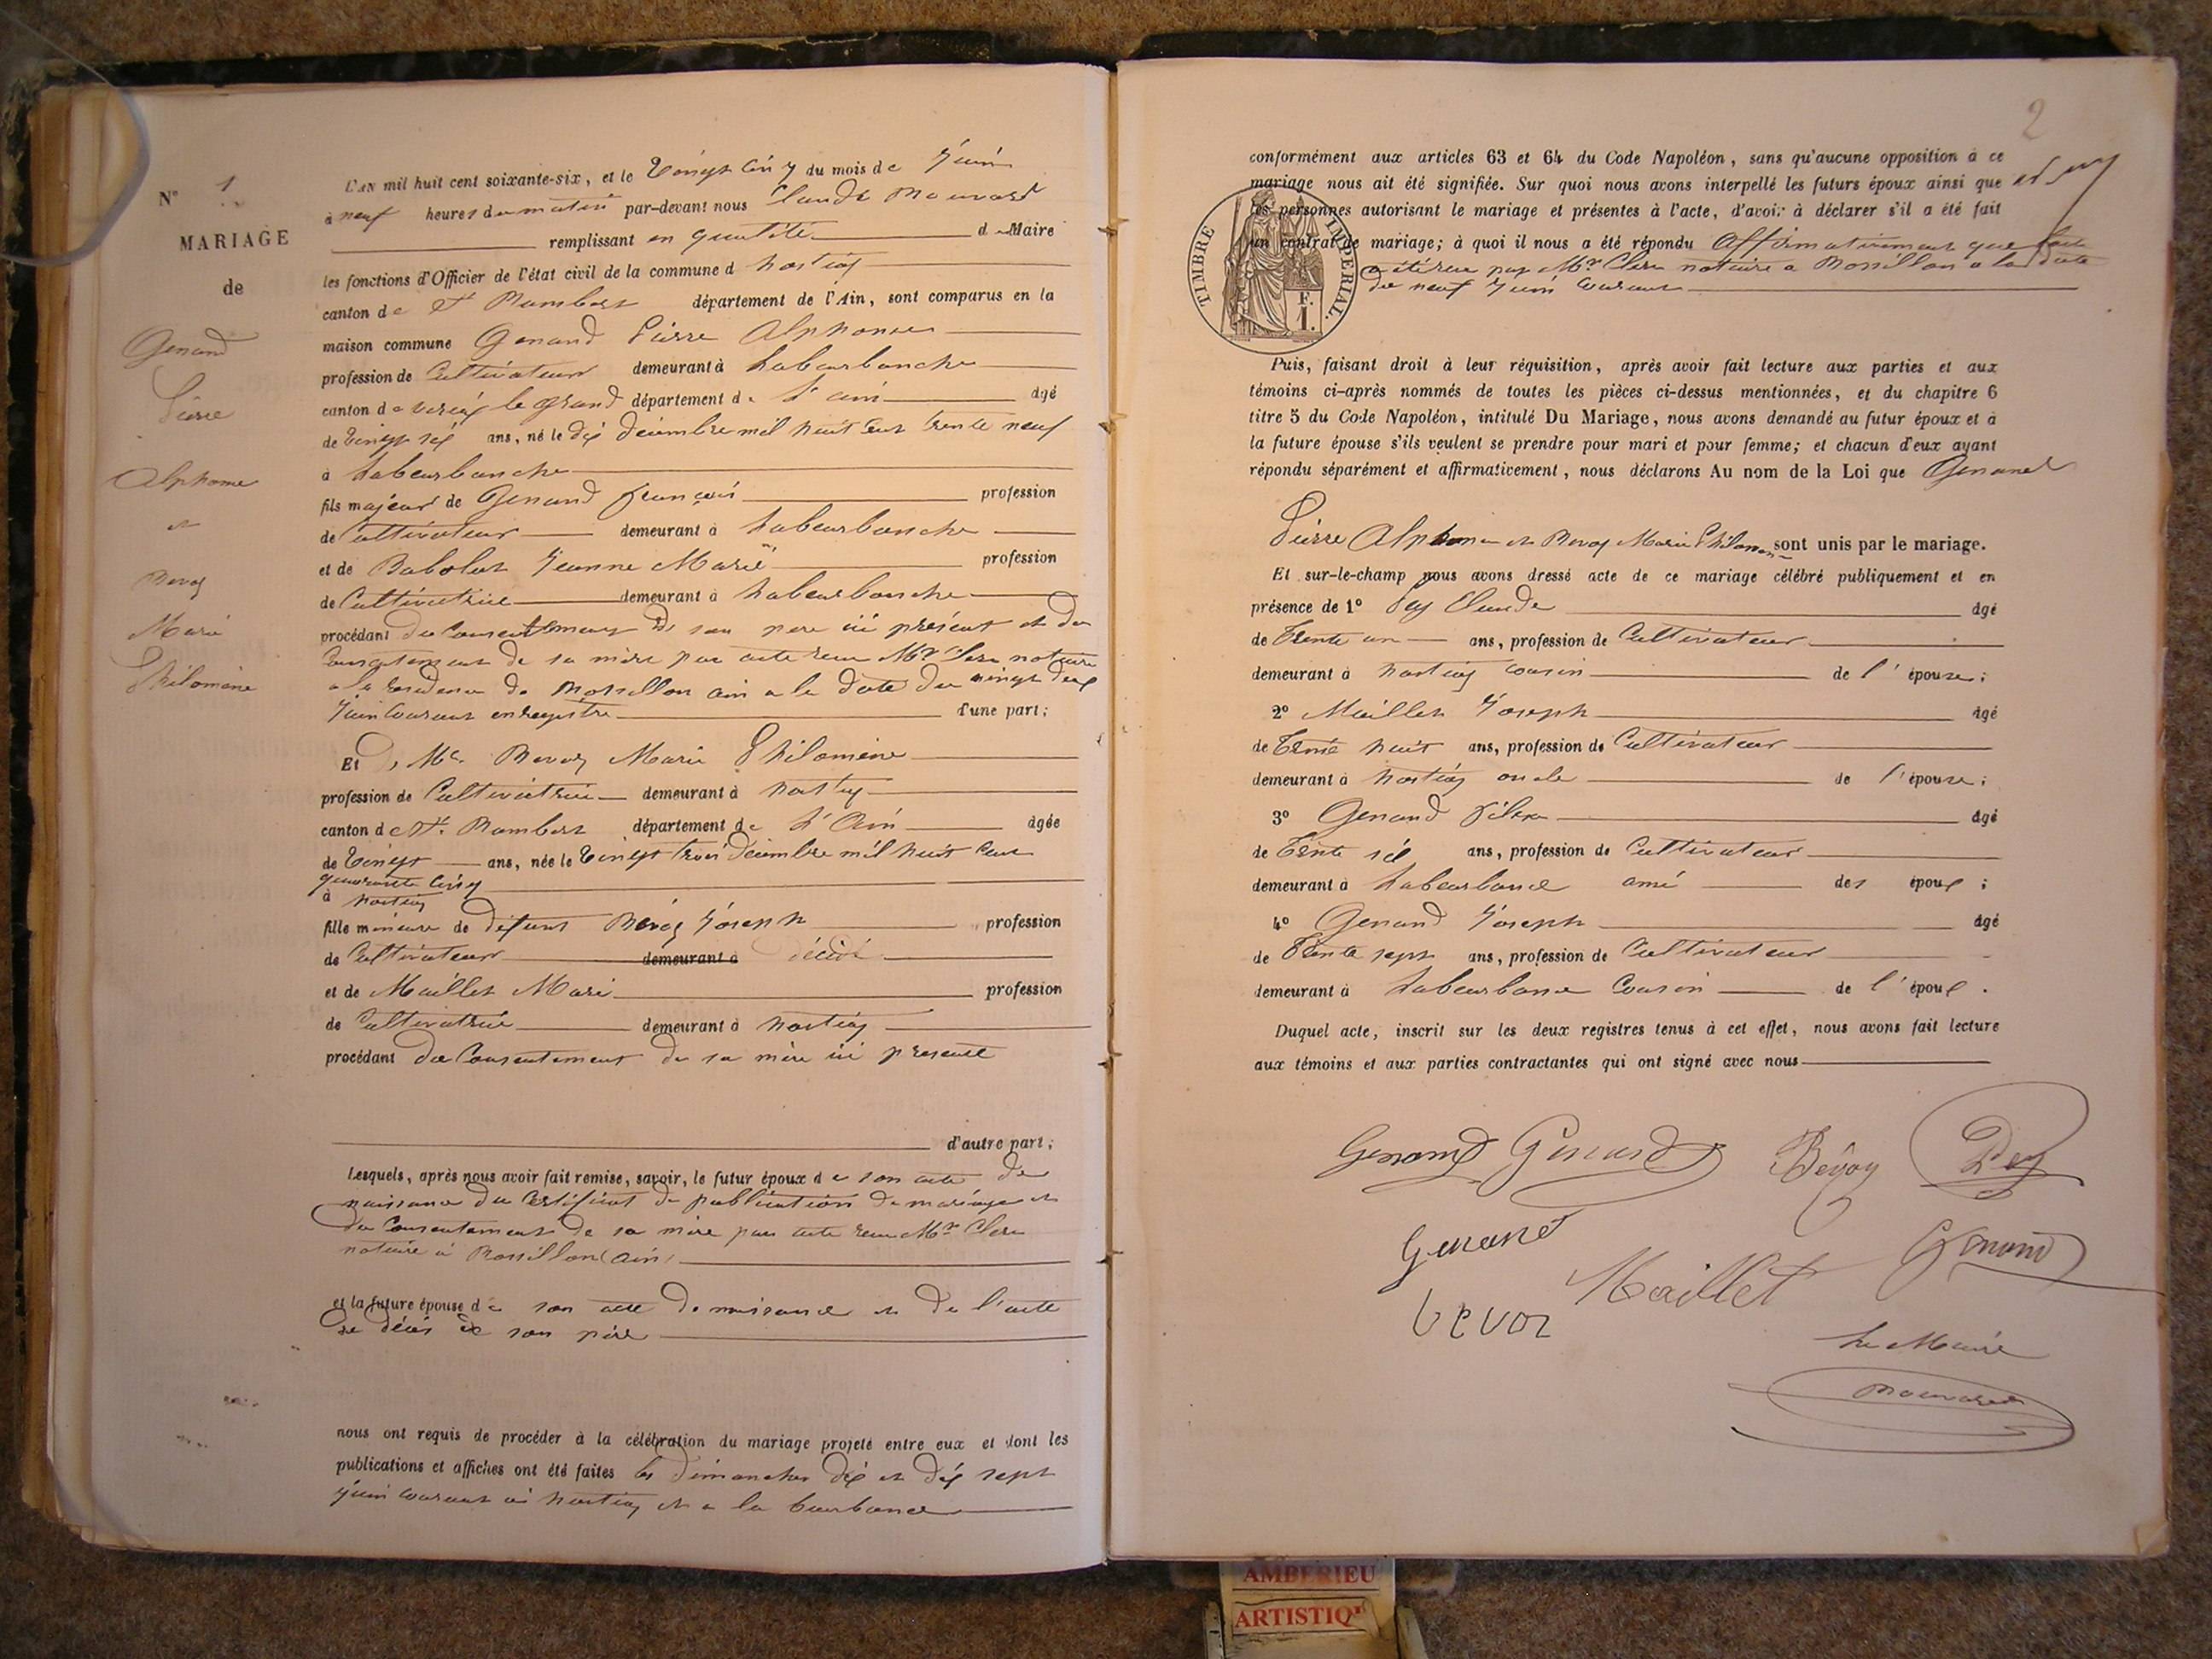 N° 1
MARIAGE
de
Genand
Pierre
Alphonse
et
Bevoz
Marie
Philomène
L'AN mil huit cent soixante-six, et le vingt cinq du mois de Juin
à neuf heures du matin par-devant nous Claude
remplissant en qualité de Maire
les fonctions d'Officier de l'état civil de la commune d'hostiaz
canton de St Rambert département de l'Ain, sont comparus en la
maison commune Genand Pierre Alphonse
profession de Cultivateur demeurant à Laburbanche
canton de virieu le grand département de L'ain âgé
de vingt six ans, né le dix décembre mil huit cent trente neuf
à Laburbanche
fils majeur de Genand françois profession
de Cultivateur demeurant à Laburbanche
et de Babolat Jeanne Marie profession
de Cultivatrice demeurant à Laburbanche
procédant du consentement de son père ici présent et du
consentement de sa mère par acte reçu Mr Clerc notaire
a la résidence de Rossillon ain a la date du vingt deux
Juin courant enregistré d'une part;
Et Bevoz Marie Philomène
profession de Cultivatrice demeurant à hostiaz
canton de St Rambert département de L'Ain âgée
de vingt ans, née le vingt trois décembre mil huit cent
quarante cinq
à hostiaz
fille mineure de défunt Bévoz Joseph profession
de Cultivateur demeurant à décédé
et de Maillet Marie profession
de Cultivatrice demeurant à hostiaz
procédant du consentement de sa mère ici présente
d'autre part;
Lesquels, après nous avoir fait remise, savoir, le futur époux de son acte de
naissance du certificat de publication de mariage et
du consentement de sa mère par acte reçu Mr Clerc
notaire à Rossillon (Ain)
et la future épouse de son acte de naissance et de l'acte
de décès de son père
nous ont requis de procéder à la célébration du mariage projeté entre eux et dont les
publications et affiches ont été faites les dimanches dix et dix sept
juin courant à hostiaz et a la burbanche
2
conformément aux articles 63 et 64 du Code Napoléon, sans qu'aucune opposition à ce
mariage nous ait été signifiée. Sur quoi nous avons interpellé les futurs époux ainsi que
les personnes autorisant le mariage et présentes à l'acte, d'avoir à déclarer s'il a été fait
un contrat de mariage; à quoi il nous a été répondu Affirmativement que
a été reçu par Mr Clerc notaire a Rossillon a la date
du neuf Juin courant
TIMBRE IMPERIAL.
F.
1.
Puis, faisant droit à leur réquisition, après avoir fait lecture aux parties et aux
témoins ci-après nommés de toutes les pièces ci-dessus mentionnées, et du chapitre 6
titre 5 du Code Napoléon, intitulé Du Mariage, nous avons demandé au futur époux et à
la future épouse s'ils veulent se prendre pour mari et pour femme; et chacun d'eux ayant
répondu séparément et affirmativement, nous déclarons Au nom de la Loi que Genand
Pierre Alphonse et Bevoz Marie Philomène sont unis par le mariage.
Et sur-le-champ nous avons dressé acte de ce mariage célébré publiquement et en
présence de 1° Pey Claude âgé
de Trente un ans, profession de Cultivateur
demeurant à hostiaz cousin de l'épouse;
2° Maillet Joseph âgé
de Trente huit ans, profession de Cultivateur
demeurant à hostiaz oncle de l'épouse;
3° Genand âgé
de Trente six ans, profession de Cultivateur
demeurant à Laburbanche ami des époux;
4° Genand Joseph âgé
de Trente sept ans, profession de Cultivateur
demeurant à Laburbanche Cousin de l'époux.
Duquel acte, inscrit sur les deux registres tenus à cet effet, nous avons fait lecture
aux témoins et aux parties contractantes qui ont signé avec nous
Genand Genand Bévoz Pey
Genand Maillet Genand
bevoz
Le Maire
AMBERIEU
ARTISTIQ